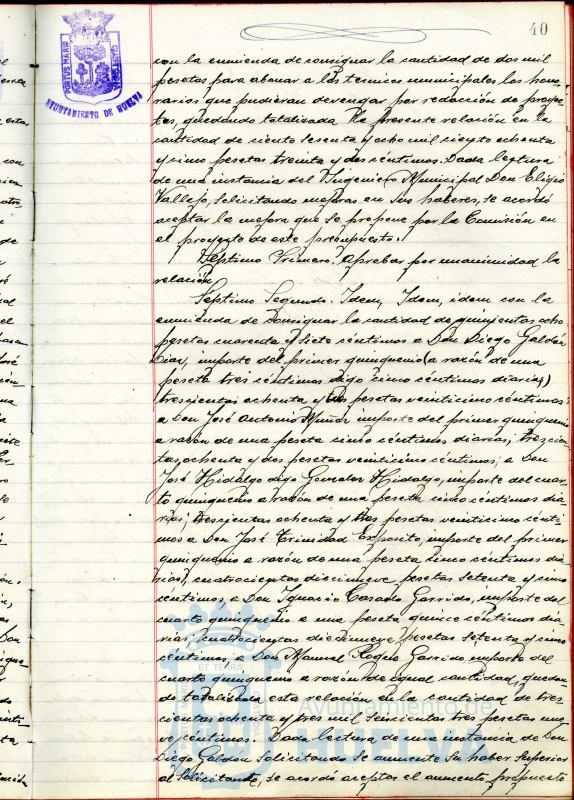 40
AYUNTAMIENTO DE HUELVA
con la enmienda de consignar la cantidad de dos mil
pesetas para abonar a los tecnicos municipales los hono-
rarios que pudieran devengar por redacción de proyec-
tos, quedando totalizada la presente relación en la
cantidad de ciento sesenta y ocho mil ciento ochenta
y cinco pesetas treinta y dos céntimos. Dada lectura
de una instancia del Ingeniero Municipal Don Eligio
Vallejo, solicitando mejoras en sus haberes, se acordó
aceptar la mejora que se propone por la Comisión en
el proyecto de este presupuesto.
Séptimo Primero. Aprobar por unanimidad la
relación
Séptimo Segundo. Idem, Idem, idem con la
enmienda de consignar la cantidad de quinientas ocho
pesetas cuarenta y siete céntimos a Don Diego Galdón
Diaz, importe del primer quinquenio (a razón de una
peseta tres céntimos digo cinco céntimos diarias)
trescientas ochenta y dos pesetas veinticinco céntimos
a Don José Antonio Muñoz importe del primer quinquenio
a razón de una peseta cinco céntimos diarias; trescien-
tas, ochenta y dos pesetas veinticinco céntimos; a Don
José Hidalgo digo Gonzalez Hidalgo, importe del cuar-
to quinquenio a razón de una peseta cinco céntimos dia-
rias; trescientas ochenta y tres pesetas veinticinco cénti-
mos a Don José Trinidad Exposito, importe del primer
quinquenio a razón de una peseta cinco céntimos dia-
rias; cuatrocientas diecinueve pesetas setenta y cinco
céntimos, a Don Ignacio Casado Garrido, importe del
cuarto quinquenio a una peseta quince céntimos dia-
rias; cuatrocientas diecinueve pesetas setenta y cinco
céntimos, a Don Manuel Roque Garrido importe del
cuarto quinquenio a razón de igual cantidad, quedan-
do totalizada esta relación en la cantidad de tres
cientas ochenta y tres mil seiscientas tres pesetas nue-
ve céntimos. Dada lectura de una instancia de Don
Diego Galdon solicitando se aumente su haber superior
al solicitante, se acordó aceptar el aumento propuesto
Ayuntamiento de
HUELVA